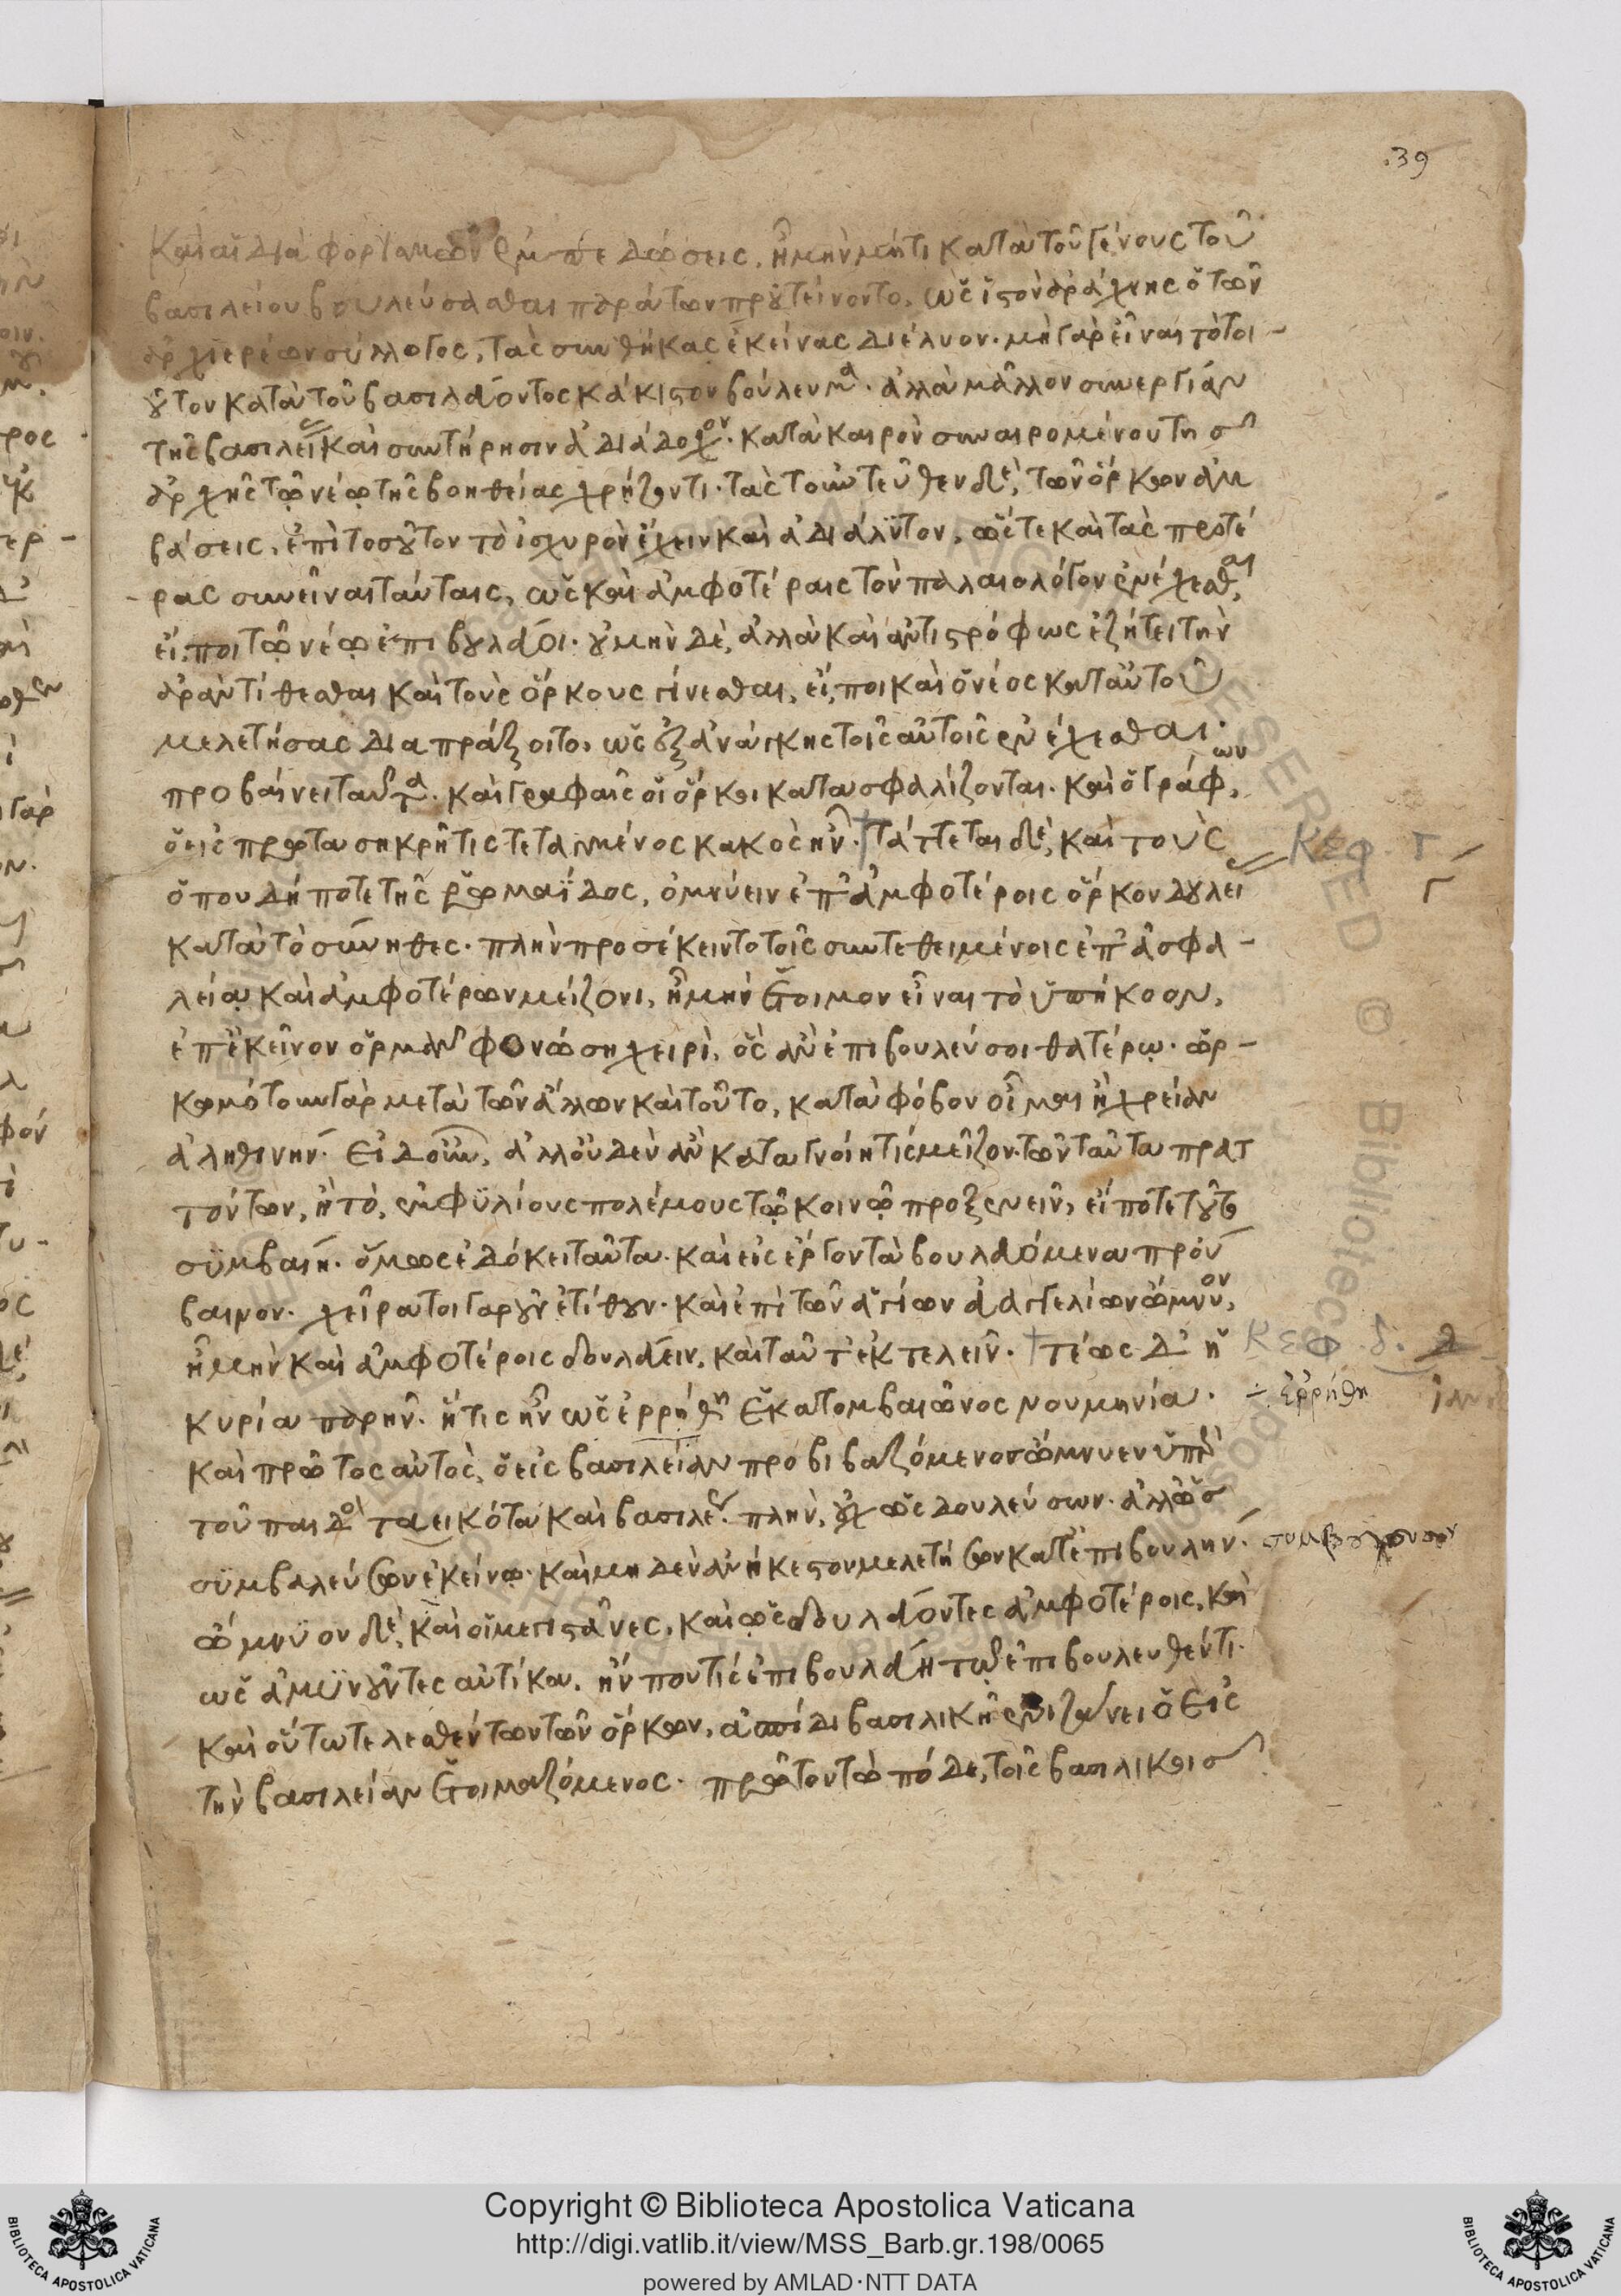 39
καὶ αἱ διὰ φορταμεδὼν ἐμπεδώσεις, ἦ μὴν μήτι κατὰ τοῦ γένους τοῦ
βασιλείου βουλεύσασθαι παρὰ τῶν προυτείνοντο, ὡς ἱστὸν ἀράχνης ὁ τῶν
ἀρχιερέων σύλλογος, τὰς συνθήκας ἐκείνας διέλυον. μὴ γὰρ εἶναι τὸ τοι-
οῦτον κατὰ τοῦ βασιλεύοντος κάκιστον βούλευμα. ἀλλὰ μᾶλλον συνεργίαν
τῆς βασιλεί καὶ συντήρησιν ἀδιάδοχον. κατὰ καιρὸν συναιρομένου τῆς
ἀρχῆς τῷ νέῳ τῆς βοηθείας χρήζοντι. τὰς τοίνυν τεῦθεν δὲ, τῶν ὅρκων ἀμ
βάσεις, ἐπὶ τοσοῦτον τὸ ἰσχυρὸν ἔχειν καὶ ἀδιάλυτον, ὥστε καὶ τὰς προτέ
ρας συνεῖναι ταύταις, ὡς καὶ ἀμφοτέραις τὸν παλαιολόγον ἐνέχεσθαι,
εἴ ποι τῷ νέῳ ἐπιβουλεύοι. οὐ μὴν δὲ, ἀλλὰ καὶ ἀντιστρόφως ἐζήτει τὴν
ἀρὰν τίθεσθαι καὶ τοὺς ὅρκους γίνεσθαι, εἴ ποι καὶ ὁ νέος κατ αὐτοῦ
μελετήσας διαπράξοιτο, ὡς ἐξ ἀνάγκης τοῖς αὐτοῖς ἐνέχεσθαι.
προβαίνει ταῦτα. καὶ γραφαῖς οἱ ὅρκοι κατασφαλίζονται. καὶ ὁ γράφων,
ὁ εἰς πρωτασηκρῆτις τεταγμένος κακὸς ἦν. † τάττεται δὲ, καὶ τοὺς
Κεφ. Γ
ὅπου δήποτε τῆς ῥωμαΐδος, ὀμνύειν ἐπ' ἀμφοτέροις ὅρκον δουλεί
κατὰ τὸ σύνηθες. πλὴν προσέκειντο τοῖς συντεθειμένοις ἐπ' ἀσφα-
λείᾳ καὶ ἀμφοτέρων μείζονι, ἦ μὴν ἕτοιμον εἶναι τὸ ὑπήκοον,
ἐπ' ἐκεῖνον ὁρμᾶν φονώσῃ χειρὶ, ὃς ἂν ἐπιβουλεύσοι θατέρῳ. ὀρ-
κωμότουν γὰρ μετὰ τῶν ἄλλων καὶ τοῦτο, κατὰ φόβον οἶμαι ἢ χρείαν
ἀληθινήν. εἰ δ' οὖν, ἀλλ' οὐδὲν ἂν καταγνοίη τις μεῖζον τῶν ταῦτα πρατ
τόντων, ἢ τὸ, ἐμφυλίους πολέμους τῷ κοινῷ προξενεῖν, εἴ ποτε τοῦτο
συμβαίη. ὅμως ἐδόκει ταῦτα. καὶ εἰς ἔργον τὰ βουλευόμενα πρού
βαινον. χεῖρά τοι γαροῦν ἐτίθουν. καὶ ἐπὶ τῶν ἁγίων εὐαγγελίων ὤμνυον,
ἦ μὴν καὶ ἀμφοτέροις δουλεύειν, καὶ ταῦτ' ἐκτελεῖν. † τέως δ' ἡ
Κεφ. δ.
κυρία παρῆν. ἥτις ἦν ὡς ἐρρήθη ἑκατομβαιῶνος νουμηνία.
ἐρρήθη
καὶ πρῶτος αὐτὸς, ὁ εἰς βασιλείαν προβιβαζόμενος ὤμνυεν ὑπὲρ
τοῦ παιδὸς τὰ εἰκότα καὶ βασιλέως. πλὴν, οὐχ ὡς δουλεύσων. ἀλλ' ὡς
συμβαλεύσων ἐκείνῳ. καὶ μηδὲν ἀνήκεστον μελετήσων κατ' ἐπιβουλήν.
ὤμνυον δὲ, καὶ οἱ μεγιστᾶνες, καὶ ὡς δουλεύοντες ἀμφοτέροις, καὶ
ὡς ἀμυνοῦντες αὐτίκα, ἤν που τις ἐπιβουλεύῃ τῷ ἐπιβουλευθέντι.
καὶ οὕτω τελεσθέντων τῶν ὅρκων, ἀσπίδι βασιλικῇ ἐνιζάνει ὁ εἰς
τὴν βασιλείαν ἑτοιμαζόμενος. πρῶτον τὼ πόδε, τοῖς βασιλικοῖς
Copyright © Biblioteca Apostolica Vaticana
http://digi.vatlib.it/view/MSS_Barb.gr.198/0065
powered by AMLAD·NTT DATA
BIBLIOTECA APOSTOLICA VATICANA
BIBLIOTECA APOSTOLICA VATICANA